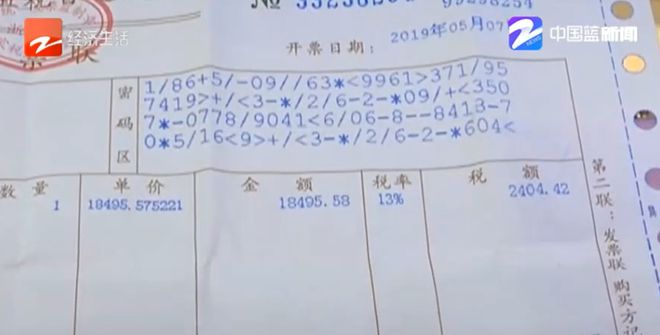 经济生活
中国蓝新闻
NEWS
联
№
99298254
开票日期：
2019年05月07
密码区
1/86+5/-09//63*<9961>371/95
7419>+/<3-*/2/6-2-*09/+<350
7*-0778/9041<6/06-8--8413-7
0*5/16<9>+/<3-*/2/6-2-*604<
数量 单价 金额 税率 税额
1 18495.575221 18495.58 13% 2404.42
第二联：发票联 购买方记